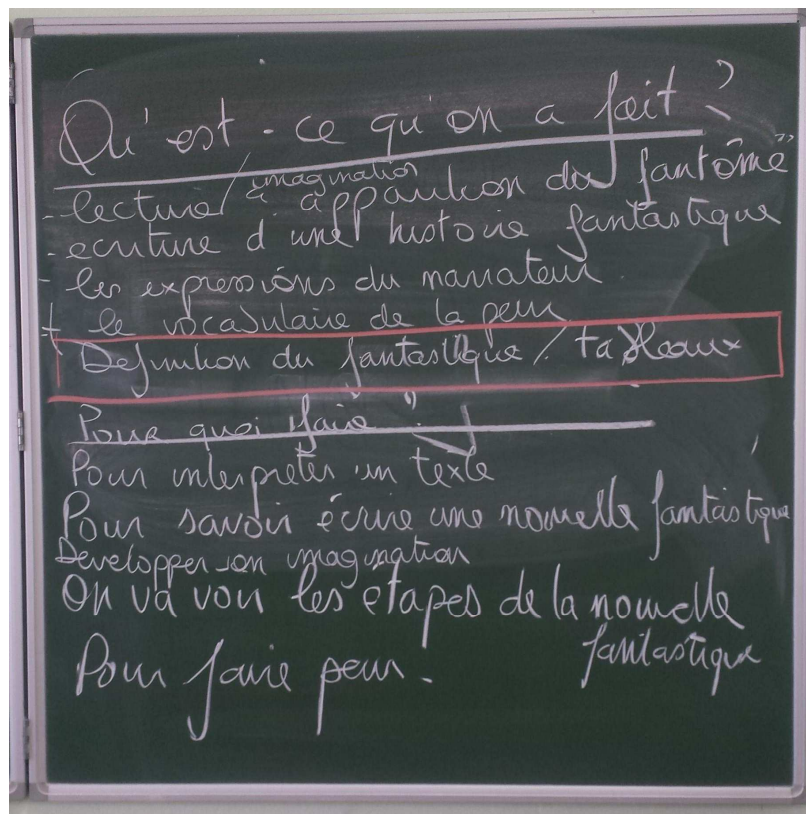 Qu'est-ce qu'on a fait ?
imagination
- lecture / "à apparition du fantôme"
- ecriture d'une histoire fantastique
- les expressions du narrateur
+ le vocabulaire de la peur
Definition du fantastique / tableaux
Pour quoi faire ?
Pour interpreter un texte
Pour savoir écrire une nouvelle fantastique
Developper son imagination
On va voir les etapes de la nouvelle
fantastique
Pour faire peur.